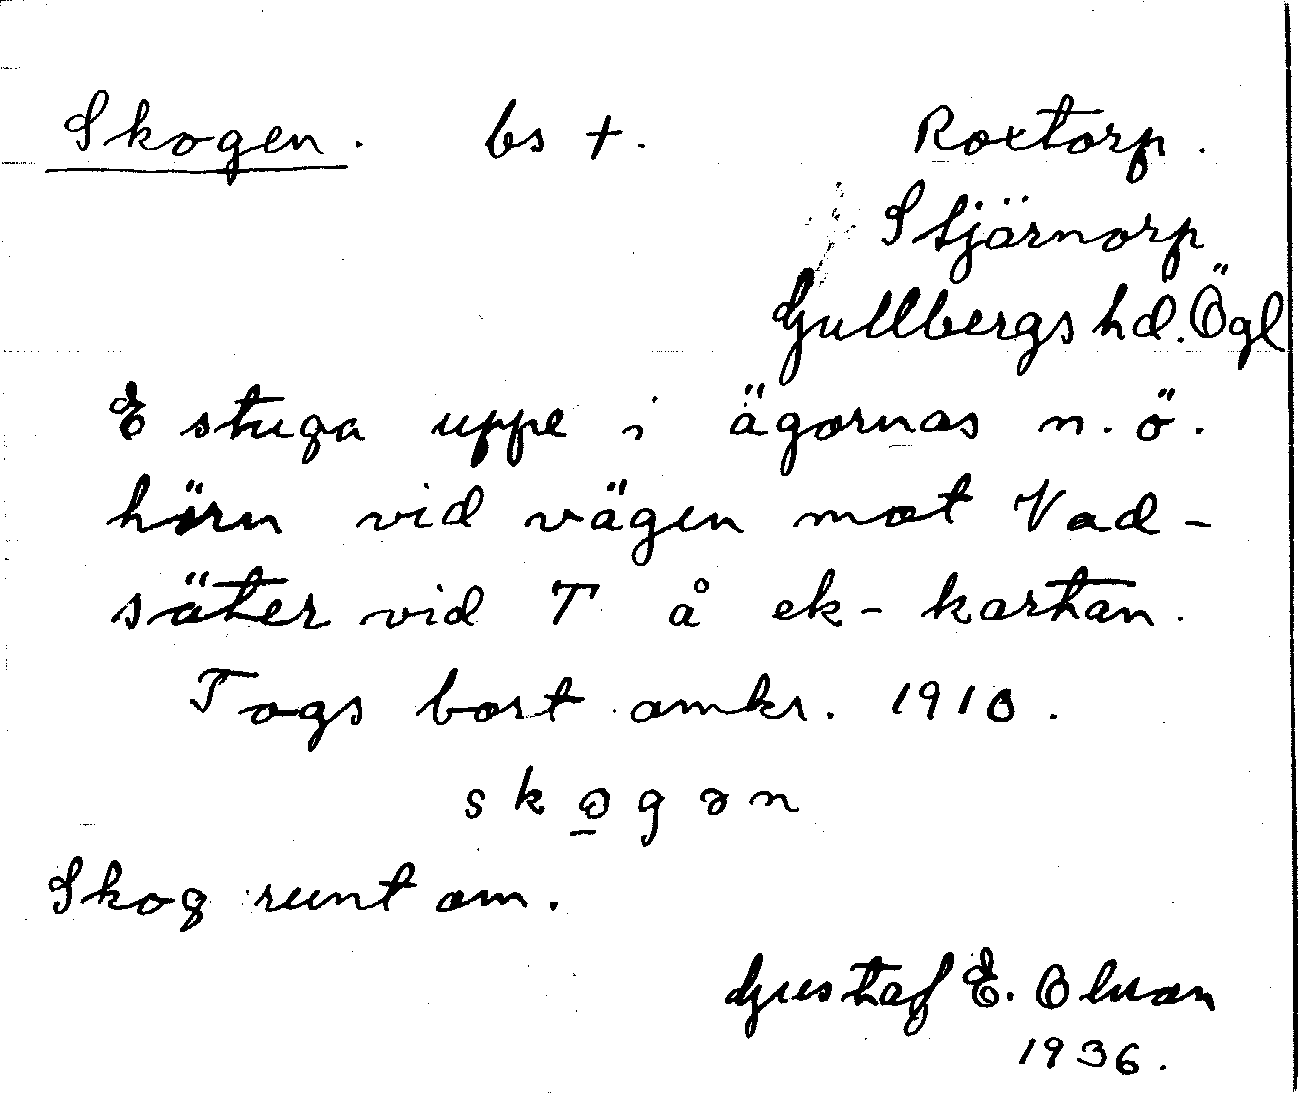 Skogen. bs +. Roxtorp.
Stjärnorp
Gullbergs hd. Ögl
E stuga uppe i ägornas n. ö.
hörn vid vägen mot Vad-
säter vid T å ek-kartan.
Togs bort omkr. 1910.
skogən
Skog runt om.
Gustaf E. Olson
1936.